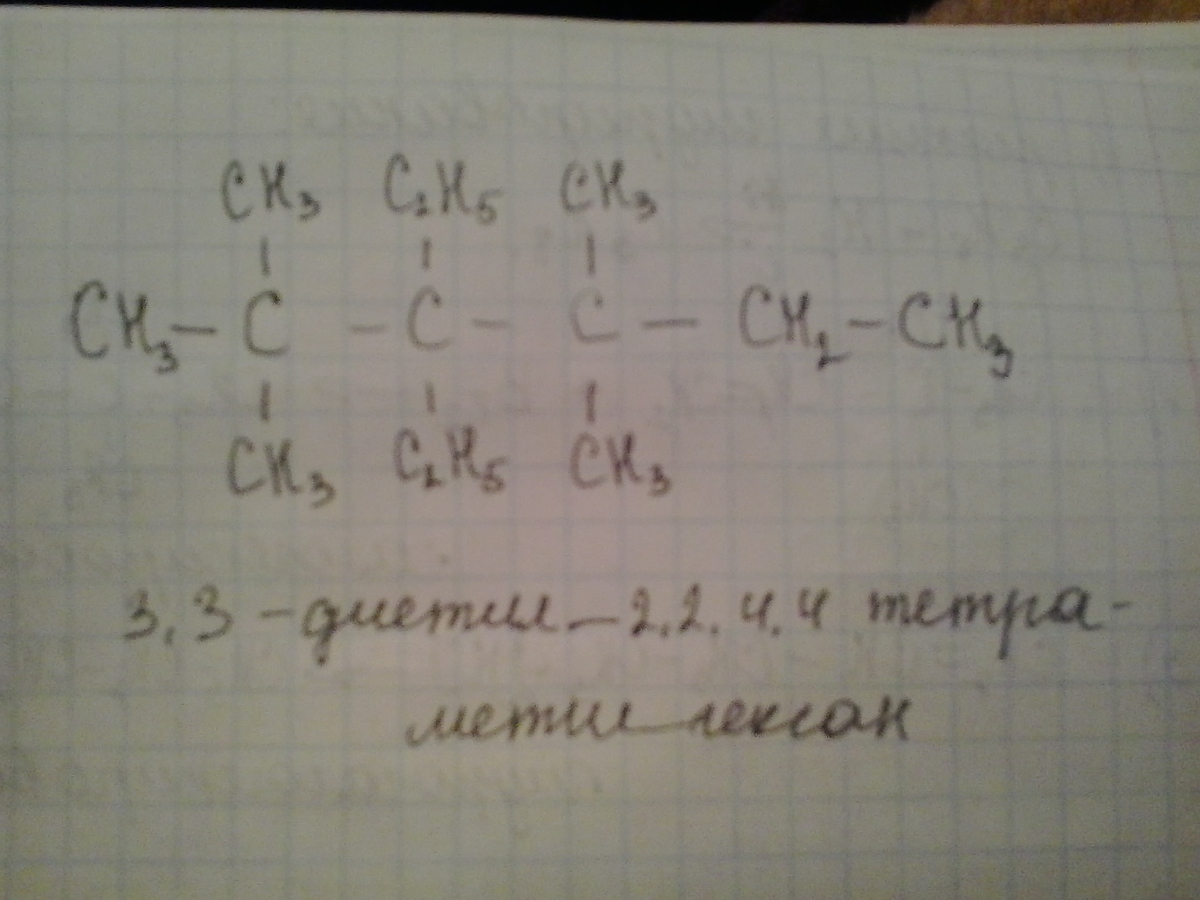 CH₃ C₂H₅ CH₃
CH₃ – C – C – C – CH₂ – CH₃
CH₃ C₂H₅ CH₃
3,3 – диетил – 2.2.4.4 тетра-
метил гексан